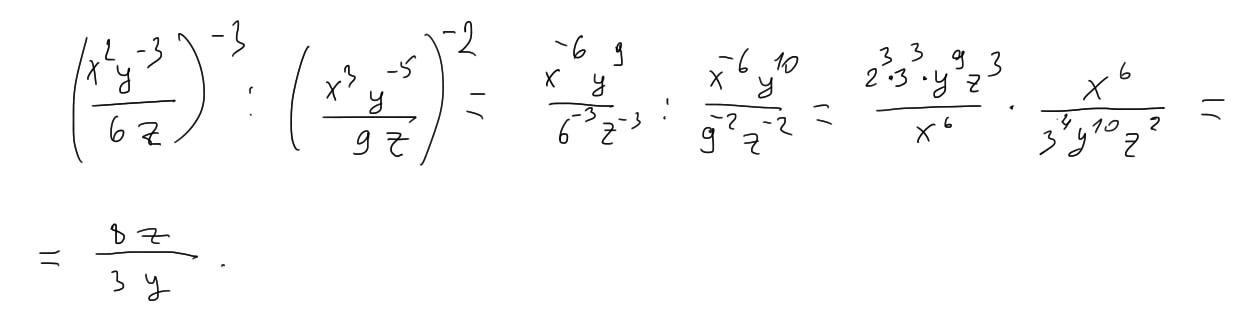 (x²y⁻³/6z)⁻³ : (x³y⁻⁵/9z)⁻² = x⁻⁶y⁹/6⁻³z⁻³ : x⁻⁶y¹⁰/9⁻²z⁻² = 2³·3³·y⁹z³/x⁶ · x⁶/3⁴y¹⁰z² =
= 8z/3y .